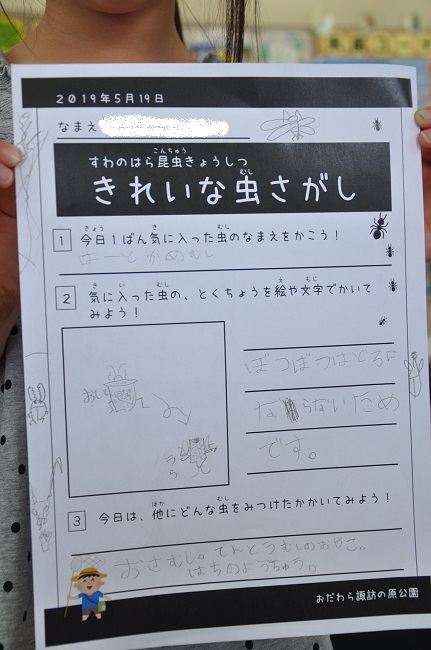 2019年5月19日
なまえ
すわのはら昆虫きょうしつ
こんちゅう
きれいな虫さがし
むし
1 今日1ばん気に入った虫のなまえをかこう！
きょう き い むし
はーとかめむし
2 気に入った虫の、とくちょうを絵や文字でかいて
き い むし え もじ
みよう！
おしり
うら
ぼつぼつはどろに
ならないため
です。
3 今日は、他にどんな虫をみつけたかかいてみよう！
ほか むし
おさむし。てんとうむしのおやこ。
はちのようちゅう。
おだわら諏訪の原公園